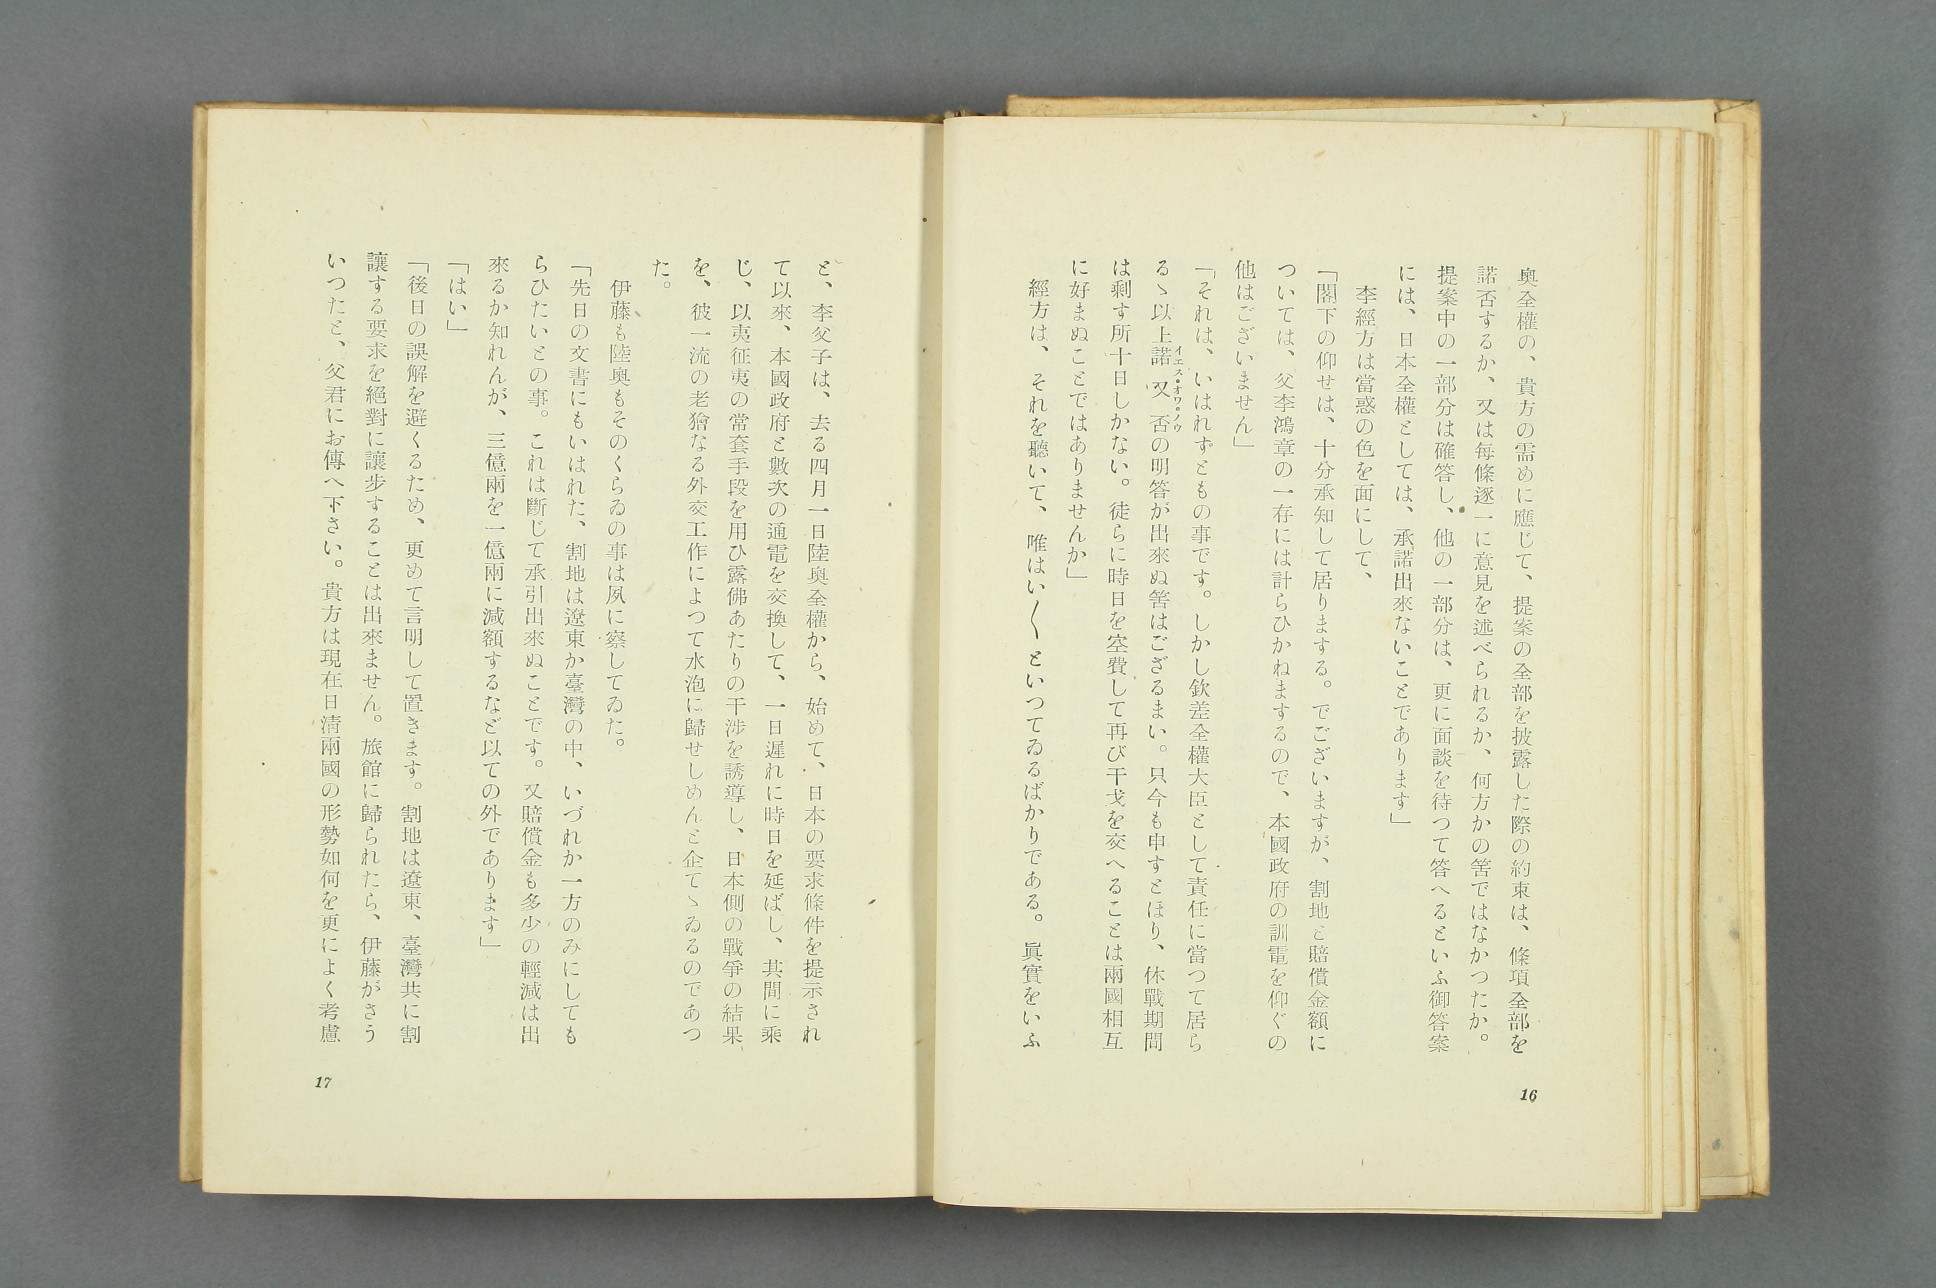 奧全權の、貴方の需めに應じて、提案の全部を披露した際の約束は、條項全部を
諾否するか、又は每條逐一に意見を述べられるか、何方かの筈ではなかつたか。
提案中の一部分は確答し、他の一部分は、更に面談を待つて答へるといふ御答案
には、日本全權としては、承諾出來ないことであります」
李經方は當惑の色を面にして、
「閣下の仰せは、十分承知して居りまする。でございますが、割地と賠償金額に
ついては、父李鴻章の一存には計らひかねまするので、本國政府の訓電を仰ぐの
他はございません」
「それは、いはれずともの事です。しかし欽差全權大臣として責任に當つて居ら
るゝ以上諾又否の明答が出來ぬ筈はござるまい。只今も申すとほり、休戰期間
イエス・オワ・ノウ
は剩す所十日しかない。徒らに時日を空費して再び干戈を交へることは兩國相互
に好まぬことではありませんか」
經方は、それを聽いて、唯はい〱といつてゐるばかりである。眞實をいふ
16
と、李父子は、去る四月一日陸奧全權から、始めて、日本の要求條件を提示され
て以來、本國政府と數次の通電を交換して、一日遲れに時日を延ばし、其間に乘
じ、以夷征夷の常套手段を用ひ露佛あたりの干涉を誘導し、日本側の戰爭の結果
を、彼一流の老獪なる外交工作によつて水泡に歸せしめんと企てゝゐるのであつ
た。
伊藤も陸奧もそのくらゐの事は夙に察してゐた。
「先日の文書にもいはれた、割地は遼東か臺灣の中、いづれか一方のみにしても
らひたいとの事。これは斷じて承引出來ぬことです。又賠償金も多少の輕減は出
來るか知れんが、三億兩を一億兩に減額するなど以ての外であります」
「はい」
「後日の誤解を避くるため、更めて言明して置きます。割地は遼東、臺灣共に割
讓する要求を絕對に讓步することは出來ません。旅館に歸られたら、伊藤がさう
いつたと、父君にお傳へ下さい。貴方は現在日淸兩國の形勢如何を更によく考慮
17